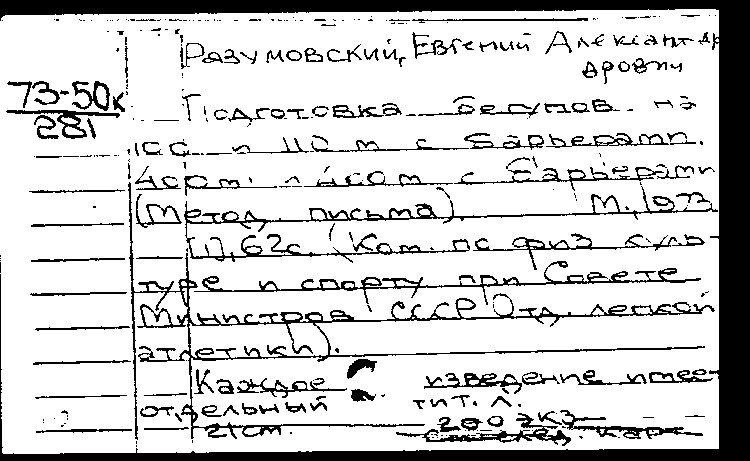 Разумовский, Евгений Александ
дрович
73-50к
281
Подготовка бегунов на
100 и 110 м с барьерами.
400 м. и 400 м с барьерами
(Метод. письма). М., 1973
[1], 62с. (Ком. по физ куль-
туре и спорту при Совете
Министров СССР Отд. легкой
атлетики).
Каждое изведение имее
отдельный тит. л.
21см. 200 экз
след. карт